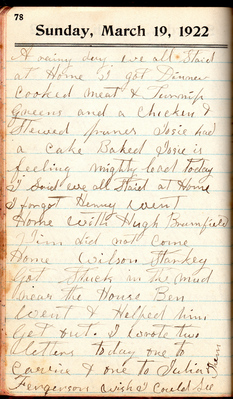 78
Sunday, March 19, 1922
A rainy day we all Staid
at Home I got Dinner
cooked meat & Turnip
Greens and a Chicken &
Stewed prunes Josie had
a cake Baked Josie is
feeling mighty bad today
I said we all Staid at Home
I forgot Henry went
Home with Hugh Brumfield
Jim did not come
Home Wilson Starkey
Got Stuck in the mud
near the House Ben
went & Helped him
Get out. I wrote two
letters today one to
Carrie & one to Julia
Fergerson wish I could See